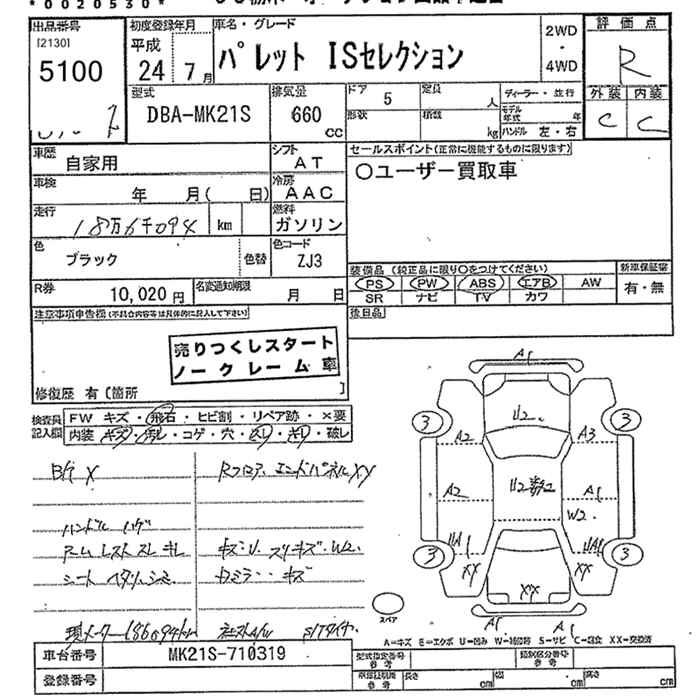 *0020530*
出品番号
[2130]
5100
初度登録年月
平成
24年 7月
車名・グレード
パレット ISセレクション
2WD
・
4WD
評価点
R
外装 内装
C C
型式
DBA-MK21S
排気量
660
CC
ドア
5
定員
人
形状
積載
kg
ディーラー・並行
モデル年式 年
ハンドル 左・右
車歴
自家用
シフト
AT
車検
年 月( 日)
冷房
AAC
走行
18万6千094
km
燃料
ガソリン
色
ブラック
色替
色コード
ZJ3
R券
10,020円
名変通知期限
月 日
セールスポイント(正常に機能するものに限ります)
〇ユーザー買取車
装備品(純正品に限り〇をつけてください)
PS PW ABS エアB AW
SR ナビ TV カワ
新車保証書
有・無
後日品
注意事項申告欄(不具合内容等は具体的に記入して下さい)
売りつくしスタート
ノークレーム車
修復歴 有[箇所 ]
検査員記入欄
FW キズ・飛石・ヒビ割・リペア跡・×要
内装・キズ・汚レ・コゲ・穴・スレ・キレ・破レ
Rフロア エンドパネルXX
ハンドル ハゲ
ルーム レスト スレ キレ
キズ・U. スリキズ・W2.
シート ヘタリ・シミ
現メーター186094km
A1
U2.
3 3
A2 A3
A2 A1
W2.
3 3
XX XX
XX
A1 A1
スペア
A=キズ E=エクボ U=凹み W=補修跡 S=サビ C=腐食 XX=交換済
車台番号
MK21S-710319
登録番号
型式指定番号
参考
類別区分番号
参考
車庫証明用
参考
長さ cm 幅 cm 高さ cm